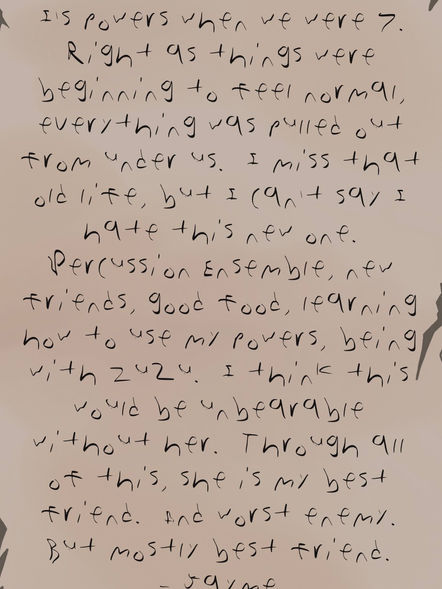 is powers when we were 7.
Right as things were
beginning to feel normal,
everything was pulled out
from under us. I miss that
old life, but I can't say I
hate this new one.
Percussion Ensemble, new
friends, good food, learning
how to use my powers, being
with Zuzu. I think this
would be unbearable
without her. Through all
of this, she is my best
friend. And worst enemy.
But mostly best friend.
- Jayme